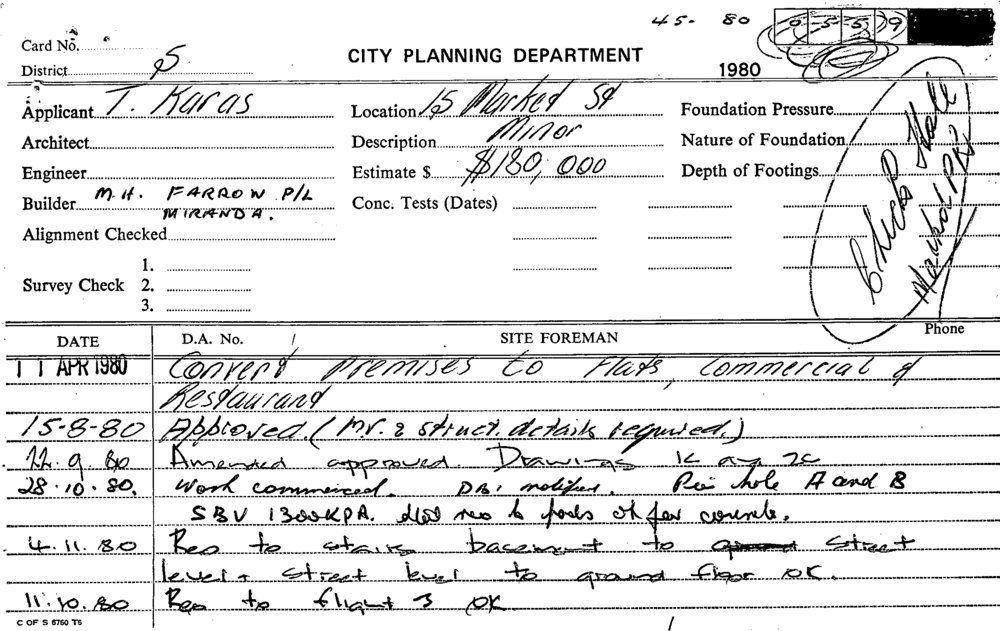 45- 80 0 5 5 9
Card No.
CITY PLANNING DEPARTMENT
District 5
1980
Applicant T. Karas
Location 15 Market St
Foundation Pressure
Architect
Description Minor
Nature of Foundation
Engineer
Estimate $ $180,000
Depth of Footings
Builder M.H. FARROW P/L
MIRANDA.
Conc. Tests (Dates)
Alignment Checked
Survey Check
1.
2.
3.
Hall
Phone
DATE D.A. No. SITE FOREMAN
11 APR 1980 Convert premises to Flats, Commercial &
Restaurant
15-8-80 Approved. (M.V. & struct. details required.)
22.9.80 Amended approved. Drawings
28.10.80. Work commenced. notified. Pier hole A and B
SBV 1300KPA. to pads OK for concrete.
4.11.80 Reo to stairs basement to ground street
level & street level to ground floor OK.
11.10.80 Reo to flight 3 OK
C OF S 6760 T6